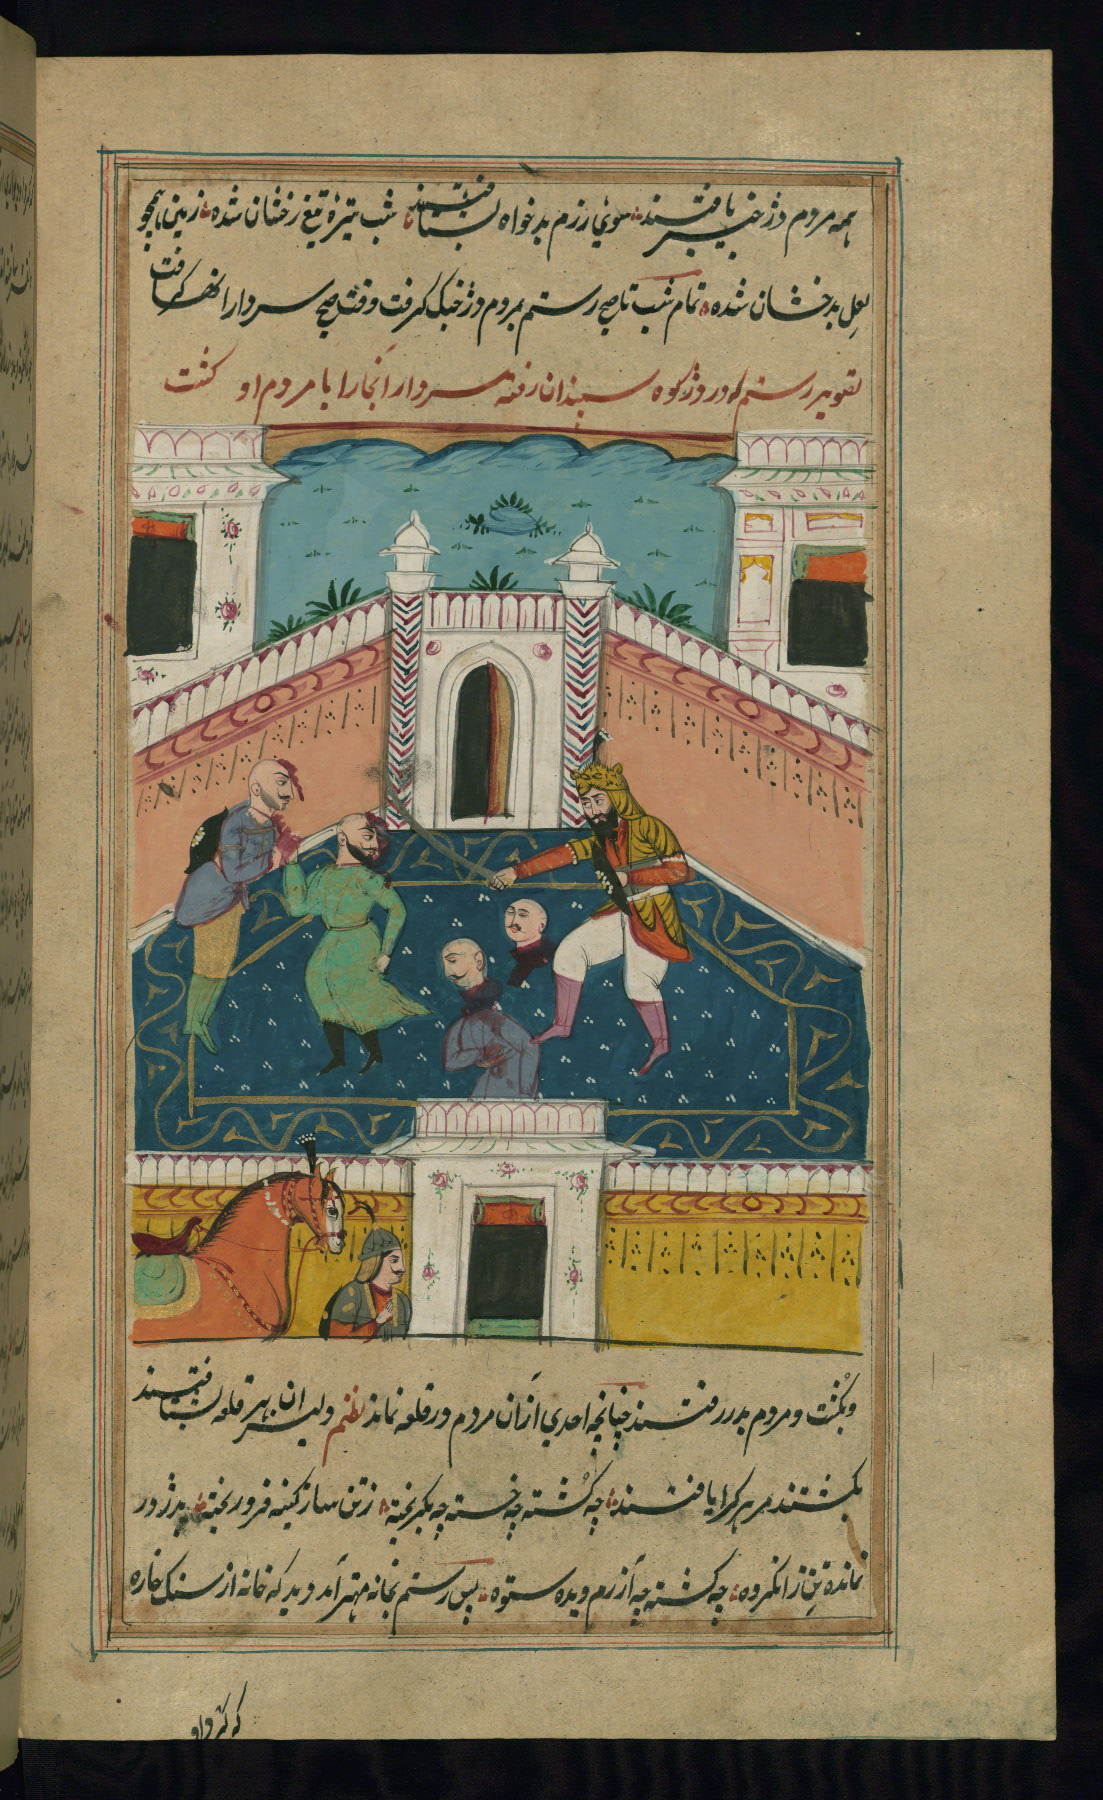 همه مردم دژ خبر یافتند سوی رزم بدخواه بشتافتند شب تیره تیغ رخشان شده زمین همچو
لعل بدخشان شده تمام شب تا صبح رستم بمردم دژ جنک کرفت وقت صبح سردار را
تصویر رستم که در دژ کوه سپندان رفته سردار آنجا را با مردم او کشت
و بکشت و مردم بدر رفتند چنانچه احدی از آن مردم در قلعه نماند نظم دلیران بهر قلعه بشتافتند
بکشتند مر هر کرا یافتند چه کشته چه خسته چه بکریخته ز تن ساز کینه فرو ریخته بدژ در
نمانده تن زانکروه چه کشته چه از رزم وی ده ستوه پس رستم بخانه مهتر آمد و دید که خانه از سنک خاره